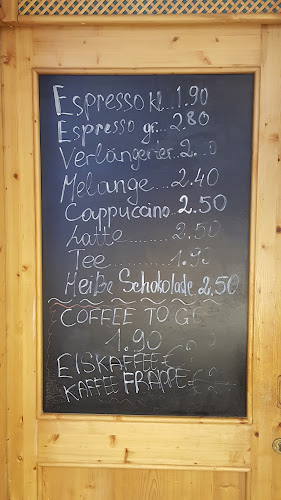 Espresso kl...1.90
Espresso gr...2.80
Verlängerter
Melange...2.40
Cappuccino 2.50
Latte 2.50
Tee 1.90
Heiße Schokolade 2.50
COFFEE TO GO
1.90
EISKAFFEE
KAFFEE FRAPPE